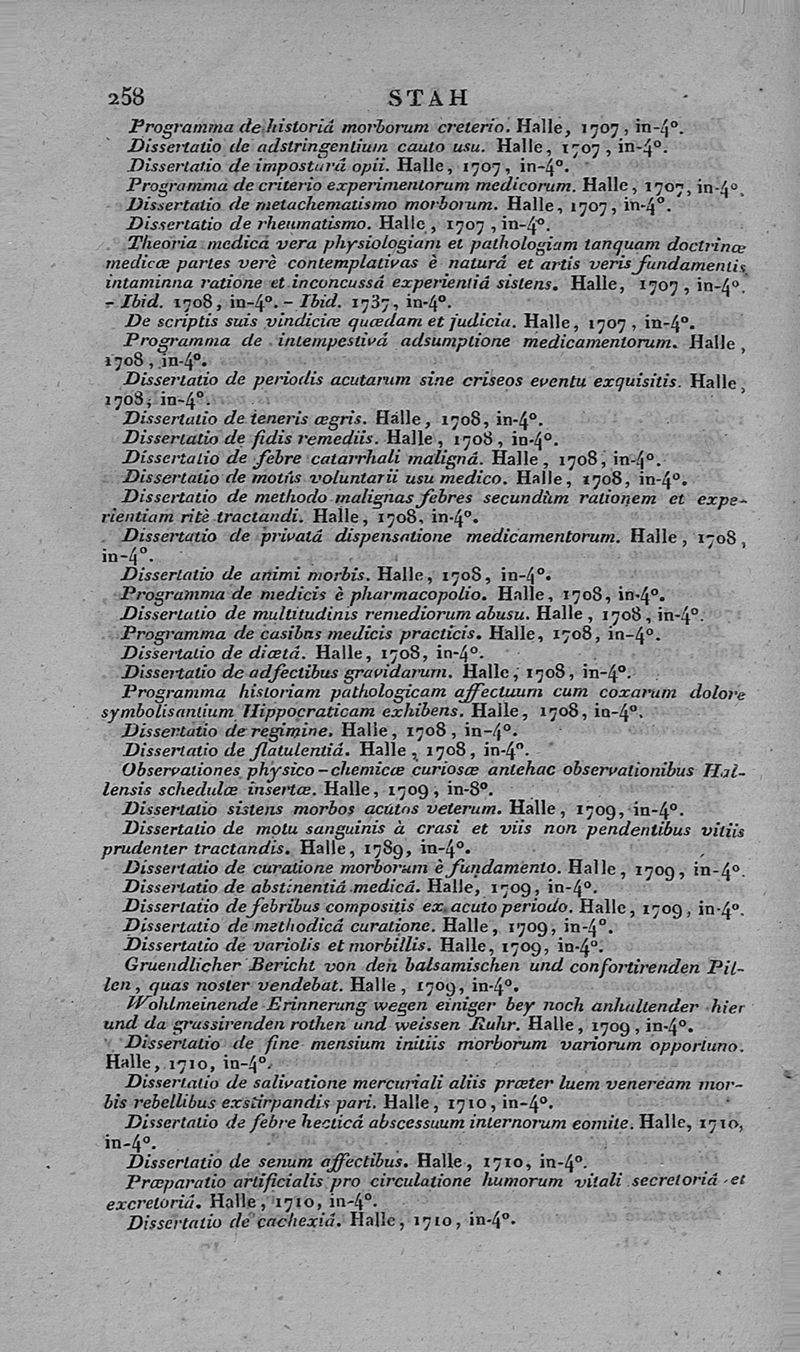 258 STAH
Programma de historiâ morborum creterio. Halle, 1707, in-4°.
Dissertatio de adstringentium cauto usu. Halle, 1707, in-4°.
Dissertatio de imposturâ opii. Halle, 1707, in-4°.
Programma de criterio experimentorum medicorum. Halle, 1707, in-4°.
Dissertatio de metachematismo morborum. Halle, 1707, in-4°.
Dissertatio de rheumatismo. Halle, 1707, in-4°.
Theoria medica vera physiologiam et pathologiam tanquam doctrinæ
medicæ partes verè contemplativas è naturâ et artis veris fundamentis
intaminna ratione et inconcussâ experientiâ sistens. Halle, 1707, in-4°.
- Ibid. 1708, in-4°. - Ibid. 1737, in-4°.
De scriptis suis vindiciæ quædam et judicia. Halle, 1707, in-4°.
Programma de intempestivâ adsumptione medicamentorum. Halle,
1708, in-4°.
Dissertatio de periodis acutarum sine criseos eventu exquisitis. Halle,
1708, in-4°.
Dissertatio de teneris ægris. Halle, 1708, in-4°.
Dissertatio de fidis remediis. Halle, 1708, in-4°.
Dissertatio de febre catarrhali malignâ. Halle, 1708, in-4°.
Dissertatio de motûs voluntarii usu medico. Halle, 1708, in-4°.
Dissertatio de methodo malignas febres secundùm rationem et expe-
rientiam ritè tractandi. Halle, 1708, in-4°.
Dissertatio de privatâ dispensatione medicamentorum. Halle, 1708,
in-4°.
Dissertatio de animi morbis. Halle, 1708, in-4°.
Programma de medicis è pharmacopolio. Halle, 1708, in-4°.
Dissertatio de multitudinis remediorum abusu. Halle, 1708, in-4°.
Programma de casibus medicis practicis. Halle, 1708, in-4°.
Dissertatio de diætâ. Halle, 1708, in-4°.
Dissertatio de adfectibus gravidarum. Halle, 1708, in-4°.
Programma historiam pathologicam affectuum cum coxarum dolore
symbolisantium Hippocraticam exhibens. Halle, 1708, in-4°.
Dissertatio de regimine. Halle, 1708, in-4°.
Dissertatio de flatulentiâ. Halle, 1708, in-4°.
Observationes physico-chemicæ curiosæ antehac observationibus Hal-
lensis schedulæ insertæ. Halle, 1709, in-8°.
Dissertatio sistens morbos acutos veterum. Halle, 1709, in-4°.
Dissertatio de motu sanguinis à crasi et viis non pendentibus vitiis
prudenter tractandis. Halle, 1789, in-4°.
Dissertatio de curatione morborum è fundamento. Halle, 1709, in-4°.
Dissertatio de abstinentiâ medicâ. Halle, 1709, in-4°.
Dissertatio de febribus compositis ex acuto periodo. Halle, 1709, in-4°.
Dissertatio de methodicâ curatione. Halle, 1709, in-4°.
Dissertatio de variolis et morbillis. Halle, 1709, in-4°.
Gruendlicher Bericht von den balsamischen und confortirenden Pil-
len, quas noster vendebat. Halle, 1709, in-4°.
Wohlmeinende Erinnerung wegen einiger bey noch anhaltender hier
und da grassirenden rothen und weissen Ruhr. Halle, 1709, in-4°.
Dissertatio de fine mensium initiis morborum variorum opportuno.
Halle, 1710, in-4°.
Dissertatio de salivatione mercuriali aliis præter luem veneream mor-
bis rebellibus exstirpandis pari. Halle, 1710, in-4°.
Dissertatio de febre hecticâ abscessuum internorum comite. Halle, 1710,
in-4°.
Dissertatio de senum affectibus. Halle, 1710, in-4°.
Præparatio artificialis pro circulatione humorum vitali secretoriâ et
excretoriâ. Halle, 1710, in-4°.
Dissertatio de cachexiâ. Halle, 1710, in-4°.